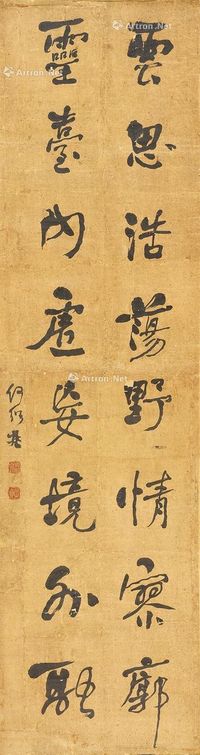 雲思浩蕩野情寥廓
靈臺內虛境外
何紹基
Artron.Net
Artron.Net
Artron.Net
Artron.Net